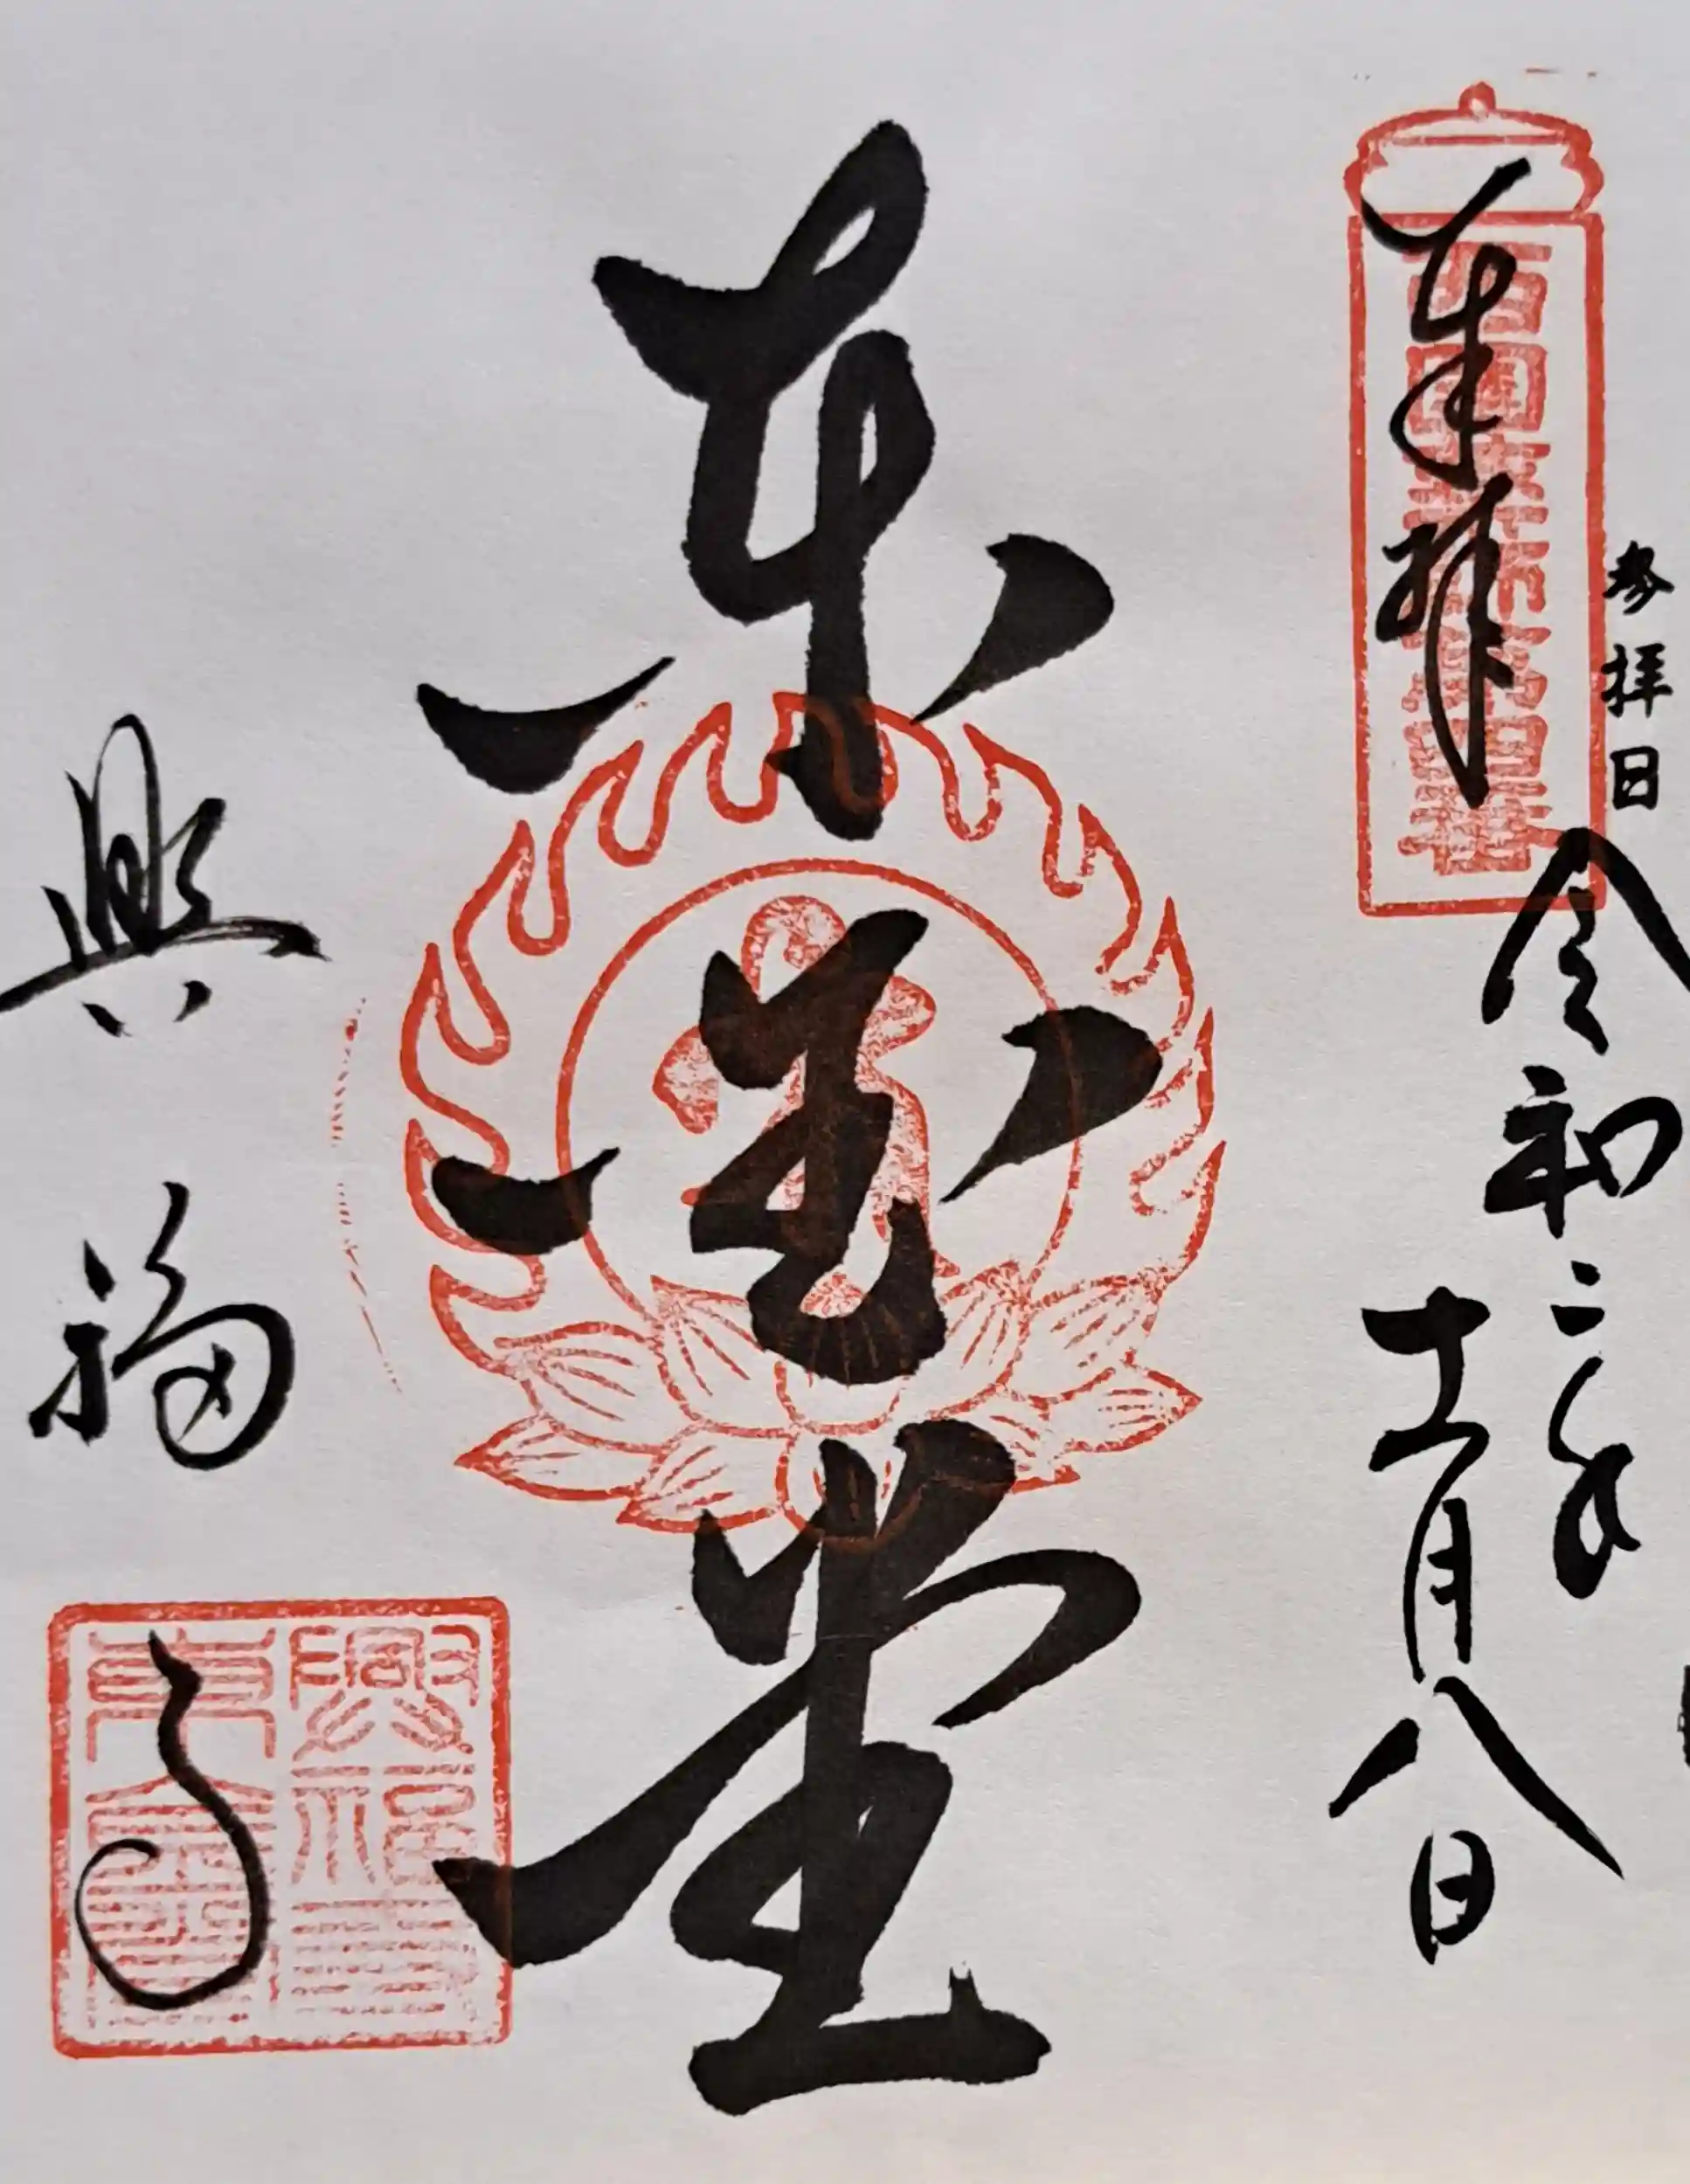 奉拝
参拝日
令和二年
十一月八日
東金堂
興福寺
興福寺
東金堂